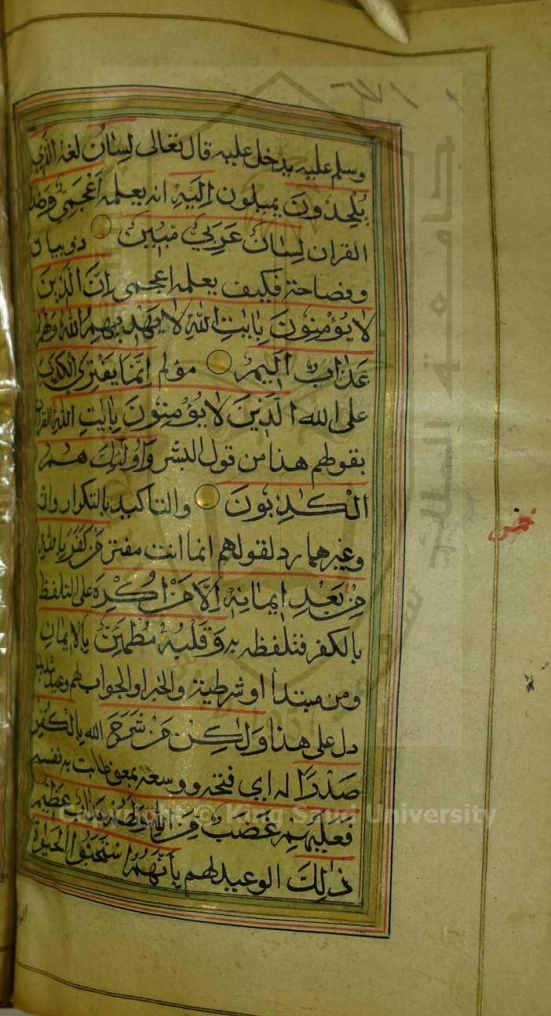 وسلم عليه يدخل عليه قال تعالى لِسَانُ لغة الَّذِي
يُلْحِدُونَ يميلون اِلَيْهِ انه يعلمه اَعْجَمِيٌّ وَهٰذَا
القران لِسَانٌ عَرَبِيٌّ مُبِينٌ ذو بيان
وفصاحة فكيف يعلمه اعجمى اِنَّ الَّذِينَ
لَا يُؤْمِنُونَ بِاٰيٰتِ اللّٰهِ لَا يَهْدِيهِمُ اللّٰهُ وَلَهُمْ
عَذَابٌ اَلِيمٌ مؤلم اِنَّمَا يَفْتَرِي الْكَذِبَ
على الله الَّذِينَ لَا يُؤْمِنُونَ بِاٰيٰتِ اللّٰهِ القران
بقولهم هذا من قول البشر وَاُولٰئِكَ هُمُ
الْكٰذِبُونَ والتاكيد بالتكرار وان
وغيرهما رد لقولهم انما انت مفتر مَنْ كَفَرَ بِاللّٰهِ
مِنْ بَعْدِ اِيمَانِهِ اِلَّا مَنْ اُكْرِهَ على التلفظ
بالكفر فتلفظ به وَقَلْبُهُ مُطْمَئِنٌّ بِالْاِيمَانِ
ومن مبتدأ او شرطية والخبر او الجواب لهم وعيد شديد
دل على هذا وَلٰكِنْ مَنْ شَرَحَ الله بِالْكُفْرِ
صَدْرًا له اي فتحه ووسعه بمعنى طابت به نفسه
فَعَلَيْهِمْ غَضَبٌ مِنَ اللّٰهِ وَلَهُمْ عَذَابٌ عَظِيمٌ
ذٰلِكَ الوعيد لهم بِاَنَّهُمُ اسْتَحَبُّوا الْحَيٰوةَ
Copyright © King Saud University